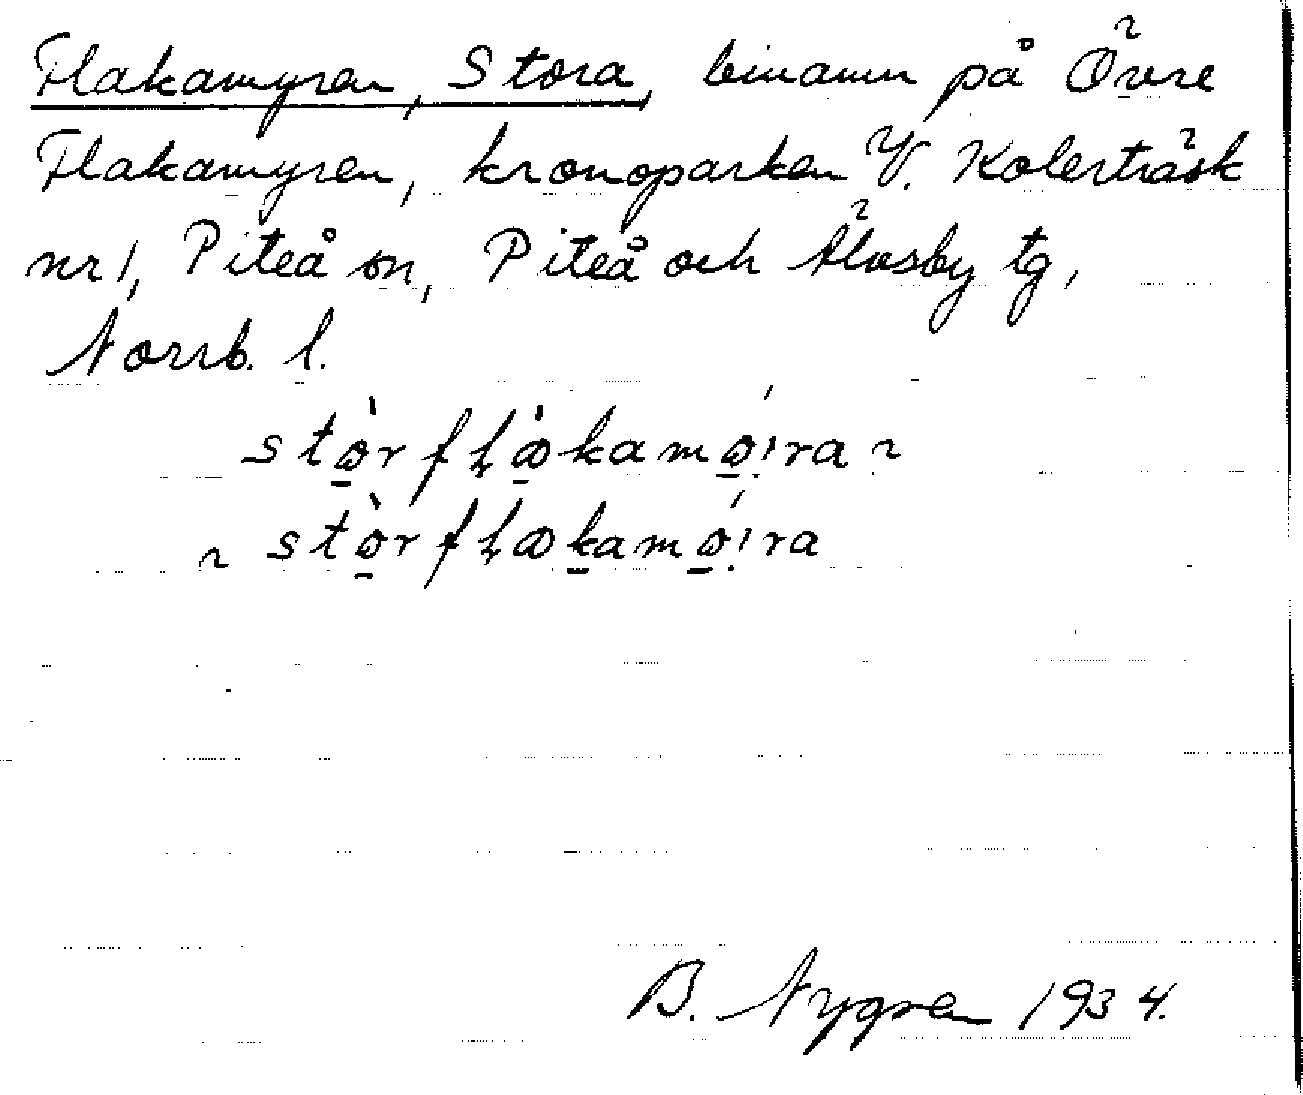 Flakamyren, Stora, binamn på Övre
Flakamyren, kronoparken V. Kolerträsk
nr 1, Piteå sn, Piteå och Älvsby tg,
Norrb. l.
B. Nygren 1934.